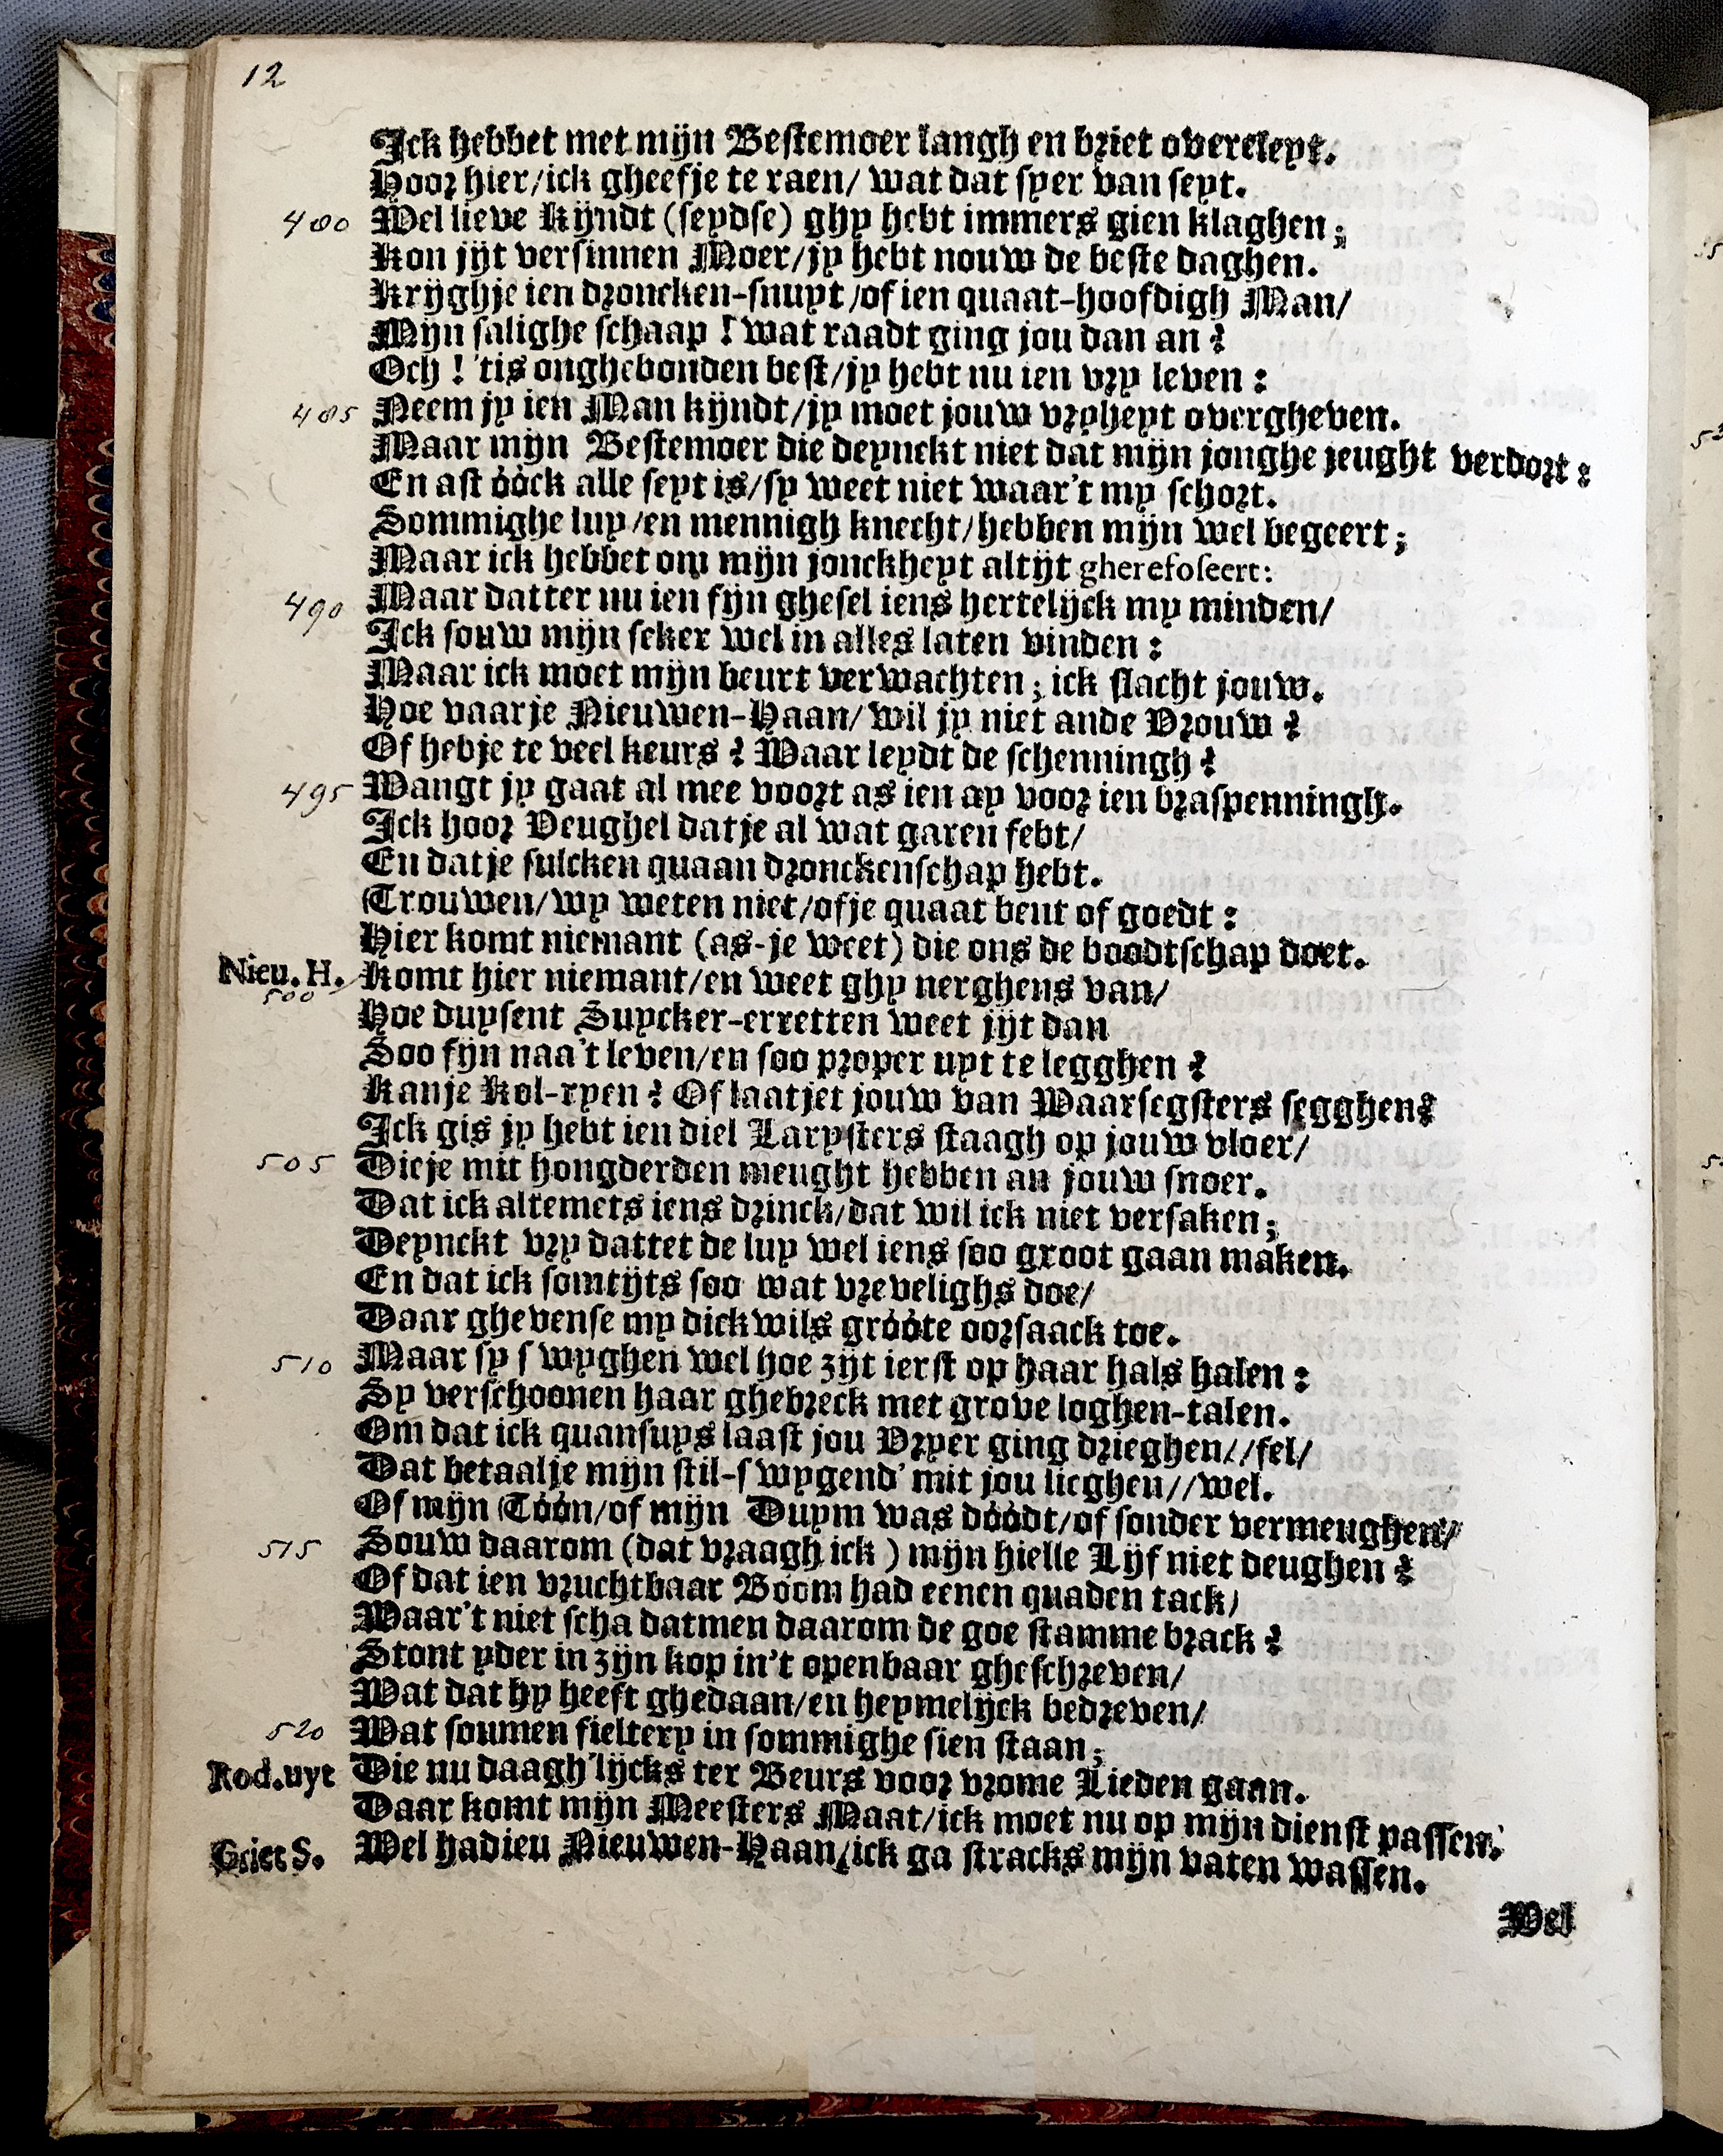 12
Ick hebbet met mijn Bestemoer langh en briet overeleyt.
Hoor hier/ick gheefje te raen/ wat dat syer van seyt.
480 Wel lieve Kijndt (seydse) ghy hebt immers gien klaghen;
Kon jijt versinnen Moer/jy hebt nouw de beste daghen.
Krijghje ien droncken-snuyt/of ien quaat-hoofdigh Man/
Mijn salighe schaap! wat raadt ging jou dan an?
Och! 'tis onghebonden best/jy hebt nu ien vry leven:
485 Neem jy ien Man kijndt/jy moet jouw vryheyt overgheven.
Maar mijn Bestemoer die deynckt niet dat mijn jonghe jeught verdort:
En ast óóck alle seyt is/sy weet niet waar't my schort.
Sommighe luy/en mennigh knecht/hebben mijn wel begeert;
Maar ick hebbet om mijn jonckheyt altijt gherefoseert:
490 Maar datter nu ien fijn ghesel iens hertelijck my minden/
Ick souw mijn seker wel in alles laten vinden:
Maar ick moet mijn beurt verwachten; ick slacht jouw.
Hoe vaarje Nieuwen-Haan/ wil jy niet ande Vrouw?
Of hebje te veel keurs? Waar leydt de schenningh?
495 Wangt jy gaat al mee voort as ien ay voor ien braspenningh.
Ick hoor Veughel datje al wat garen sebt/
En datje sulcken quaan dronckenschap hebt.
Trouwen/wy weten niet/ofje quaat bent of goedt:
Hier komt niemant (as-je weet) die ons de boodtschap doet.
Nieu. H. Komt hier niemant/en weet ghy nerghens van/
500
Hoe duysent Suycker-erretten weet jijt dan
Soo fijn naa't leven/en soo proper uyt te legghen?
Kanje Kol-ryen? Of laatjet jouw van Waarsegsters segghen?
Ick gis jy hebt ien diel Larysters staagh op jouw vloer/
505 Dieje mit hongderden meught hebben an jouw snoer.
Dat ick altemets iens drinck/dat wil ick niet versaken;
Deynckt vry dattet de luy wel iens soo groot gaan maken.
En dat ick somtijts soo wat vrevelighs doe/
Daar ghevense my dickwils gróóte oorsaack toe.
510 Maar sy swyghen wel hoe zijt ierst op haar hals halen:
Sy verschoonen haar ghebreck met grove loghen-talen.
Om dat ick quansuys laast jou Vryer ging drieghen//fel/
Dat betaalje mijn stil-swygend' mit jou lieghen//wel.
Of mijn Tóón/of mijn Duym was dóódt/of sonder vermeughen/
515 Souw daarom (dat vraagh ick) mijn hielle Lijf niet deughen?
Of dat ien vruchtbaar Boom had eenen quaden tack/
Waar't niet scha datmen daarom de goe stamme brack?
Stont yder in zijn kop in't openbaar gheschreven/
Wat dat hy heeft ghedaan/en heymelijck bedreven/
520 Wat soumen fieltery in sommighe sien staan;
Rod.uyt Die nu daagh'lijcks ter Beurs voor vrome Lieden gaan.
Daar komt mijn Meesters Maat/ick moet nu op mijn dienst passen.
Griet S. Wel hadieu Nieuwen-Haan/ick ga stracks mijn vaten wassen.
Wel